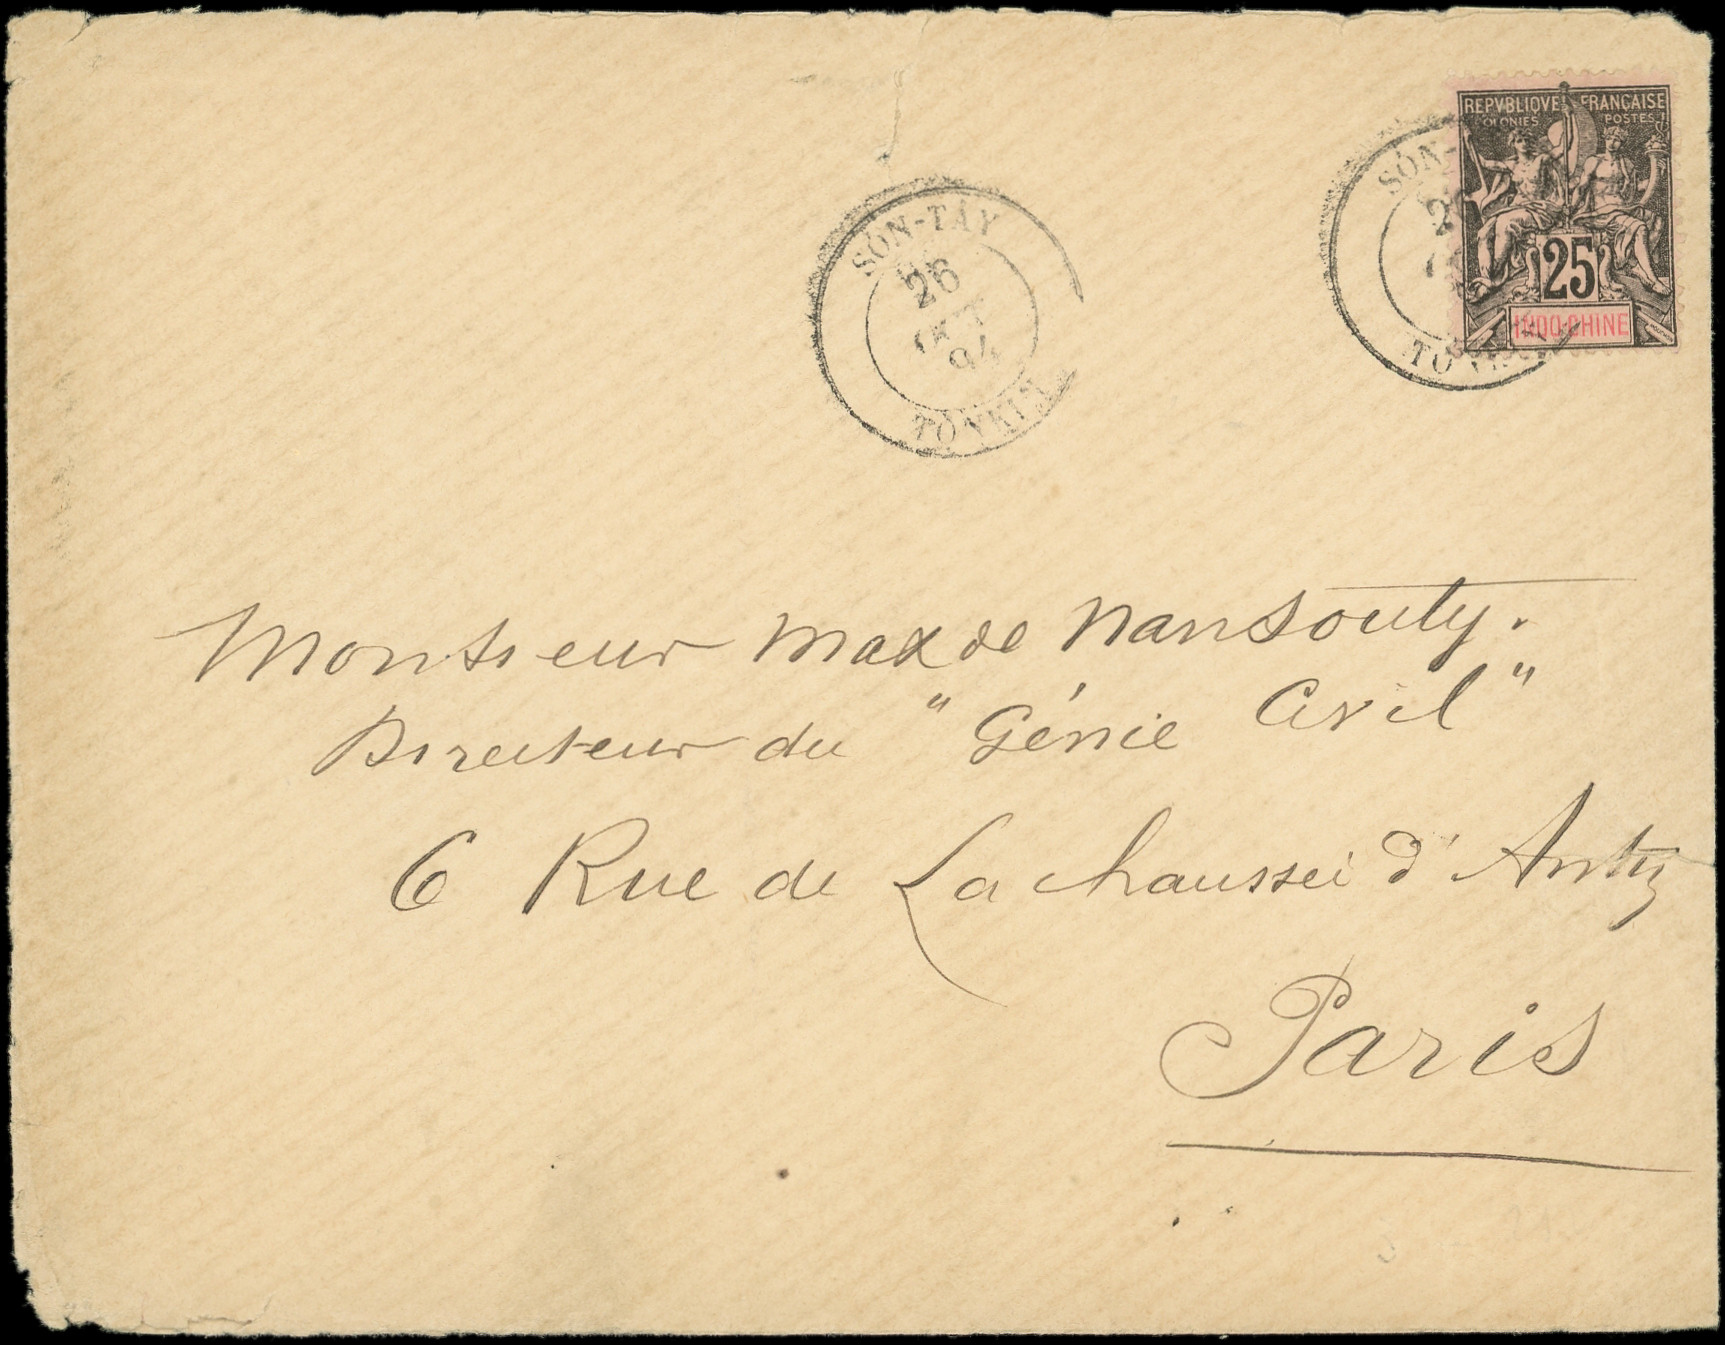 REPVBLIQUE FRANÇAISE
COLONIES POSTES
25
INDO-CHINE
SÓN-
TONK
SÓN-TÂY
26
OCT
94
TONKIN
Monsieur Max de Nansouty.
Directeur du "Génie Civil"
6 Rue de La Chaussée d'Antin
Paris